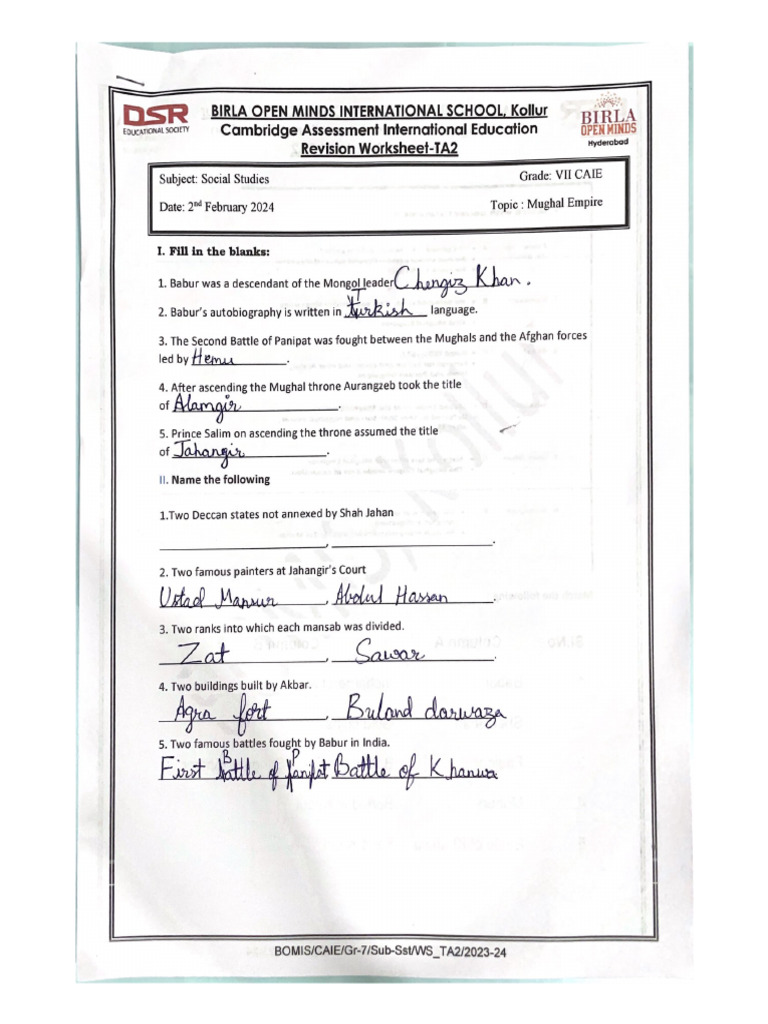 DSR
EDUCATIONAL SOCIETY
BIRLA OPEN MINDS INTERNATIONAL SCHOOL, Kollur
Cambridge Assessment International Education
Revision Worksheet-TA2
BIRLA
OPEN MINDS
Hyderabad
Subject: Social Studies
Grade: VII CAIE
Date: 2nd February 2024
Topic : Mughal Empire
I. Fill in the blanks:
1. Babur was a descendant of the Mongol leader Chengiz Khan.
2. Babur's autobiography is written in Turkish language.
3. The Second Battle of Panipat was fought between the Mughals and the Afghan forces
led by Hemu.
4. After ascending the Mughal throne Aurangzeb took the title
of Alamgir.
5. Prince Salim on ascending the throne assumed the title
of Jahangir.
II. Name the following
1.Two Deccan states not annexed by Shah Jahan
2. Two famous painters at Jahangir's Court
Ustad Mansur, Abdul Hassan.
3. Two ranks into which each mansab was divided.
Zat, Sawar.
4. Two buildings built by Akbar.
Agra fort, Buland darwaza
5. Two famous battles fought by Babur in India.
First Battle of Panipat Battle of Khanwa
BOMIS/CAIE/Gr-7/Sub-Sst/WS_TA2/2023-24